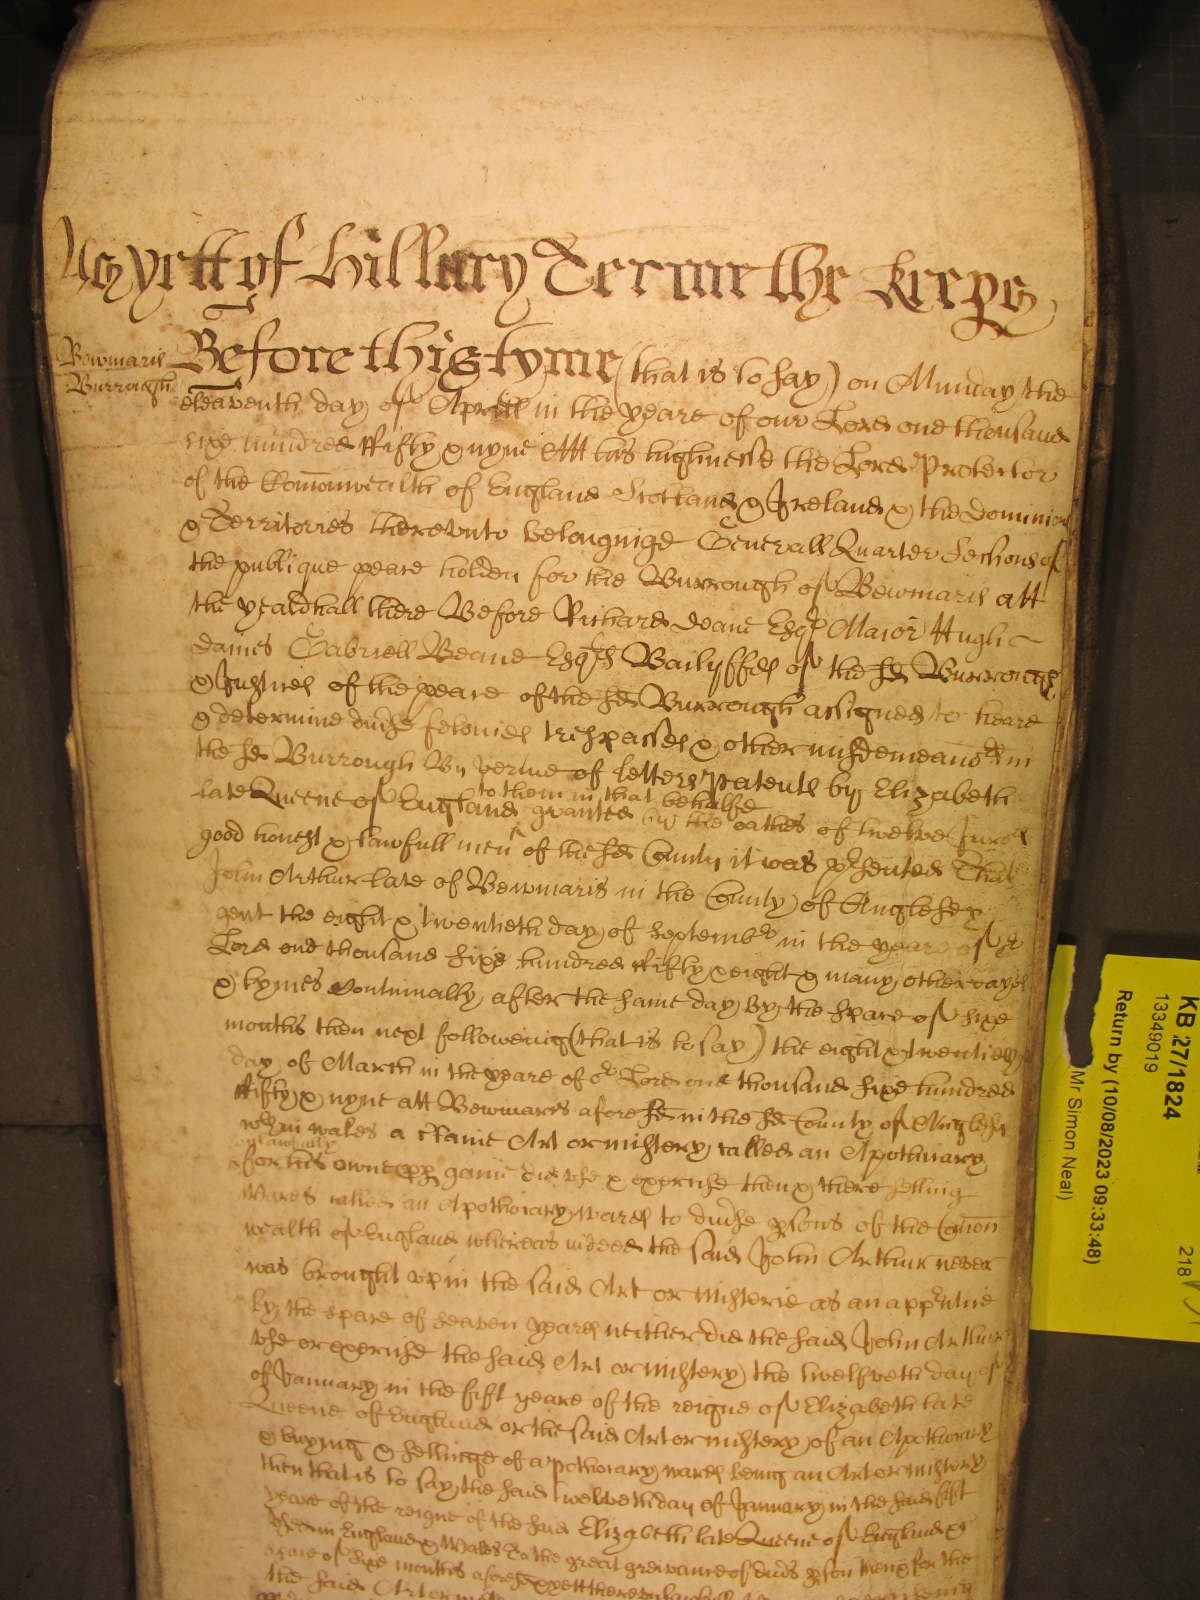 As yett of Hillary Terme the Keeps
Bewmaris
Burrough
Before this tyme (that is to say) on Munday the
eleaventh day of Aprill in the yeare of our Lord one thousand
sixe hundred ffifty & nyne Att his highnesse the Lord Protector
of the Comonwealth of England Scotland & Ireland & the dominions
& Territories thereunto belonginge Generall Quarter Sessions of
the publique peace holden for the Burrough of Bewmaris att
the yealdhall there Before Richard Deane Esqr Maior Hugh
Dames Gabriell Beane Esqrs Bailyffes of the sd Burrough
& Justices of the peace of the sd Burrough assigned to heare
& determine divse felonies trespasses & other misdemeanors in
the sd Burrough By vertue of letters Patents by Elizabeth
late Queene of England to them in that behalfe granted by the oathes of twelve Jurors
good honest & lawfull men of the sd County it was psented That
John Arthur late of Bewmaris in the County of Anglesey
gent the eight & twentieth day of Septembr in the yeare of or
Lord one thousand sixe hundred ffifty & eight & many other dayes
& tymes continually after the same day by the space of sixe
months then next followeing (that is to say) the eight & twentieth
day of March in the yeare of or Lord one thousand sixe hundred
ffifty & nyne att Bewmaris aforesd in the sd County of Anglesey
wthin wales a certaine Art or mistery called an Apothicary
unlawfully
for his owne ppr gaine did vse & exercise then & there selling
wares called an Apothicary wares to divse psons of the Comon
wealth of England whereas indeed the said John Arthur never
was brought vp in the said Art or misterie as an apprntice
by the space of seaven yeares neither did the said John Arthur
vse or exercise the said Art or mistery the twelfveth day of
of January in the fift yeare of the reigne of Elizabeth late
Queene of England or the said Art or mistery of an Apothicary
& buying & sellinge of apothicary wares being an Art or mistery
then that is to say the said twelveth day of January in the said fift
yeare of the reigne of the said Elizabeth late Queene of England &
vsed in England & Wales To the great grevance of divrs pson then & for the
space of sixe months aforesd & yett there vnlawfully
the said Art or mistery
KB 27/1824
13349019
Return by (10/08/2023 09:33:48)
Mr Simon Neal)
218